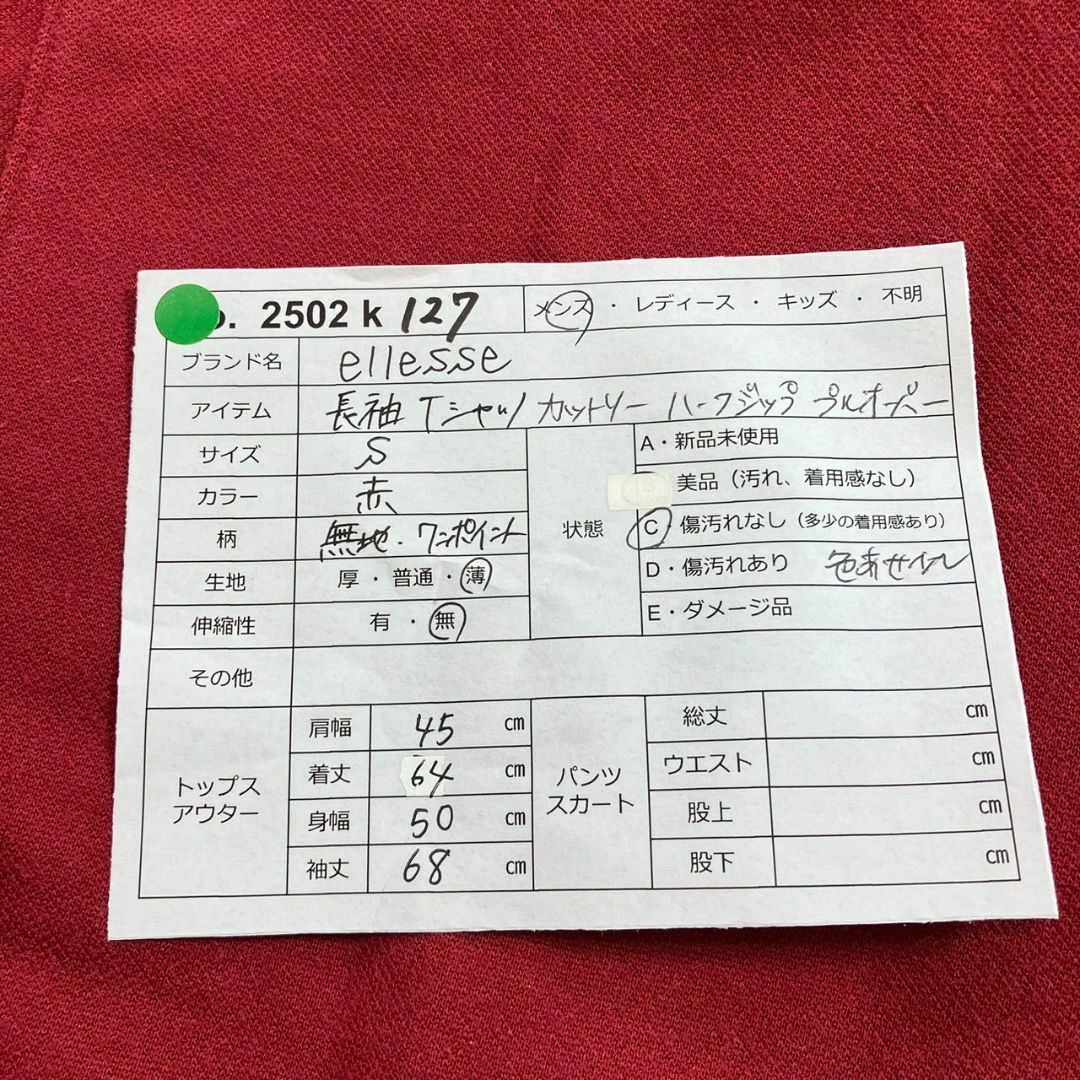 o. 2502 k 127 メンズ ・ レディース ・ キッズ ・ 不明
ブランド名 ellesse
アイテム 長袖 Tシャツ カットソー ハーフジップ プルオーバー
サイズ S
カラー 赤
柄 無地・ワンポイント
生地 厚・普通・薄
伸縮性 有・無
状態
A・新品未使用
美品（汚れ、着用感なし）
C 傷汚れなし（多少の着用感あり）
D・傷汚れあり 色あせ
E・ダメージ品
その他
トップス
アウター
肩幅 45 cm
着丈 64 cm
身幅 50 cm
袖丈 68 cm
パンツ
スカート
総丈 cm
ウエスト cm
股上 cm
股下 cm